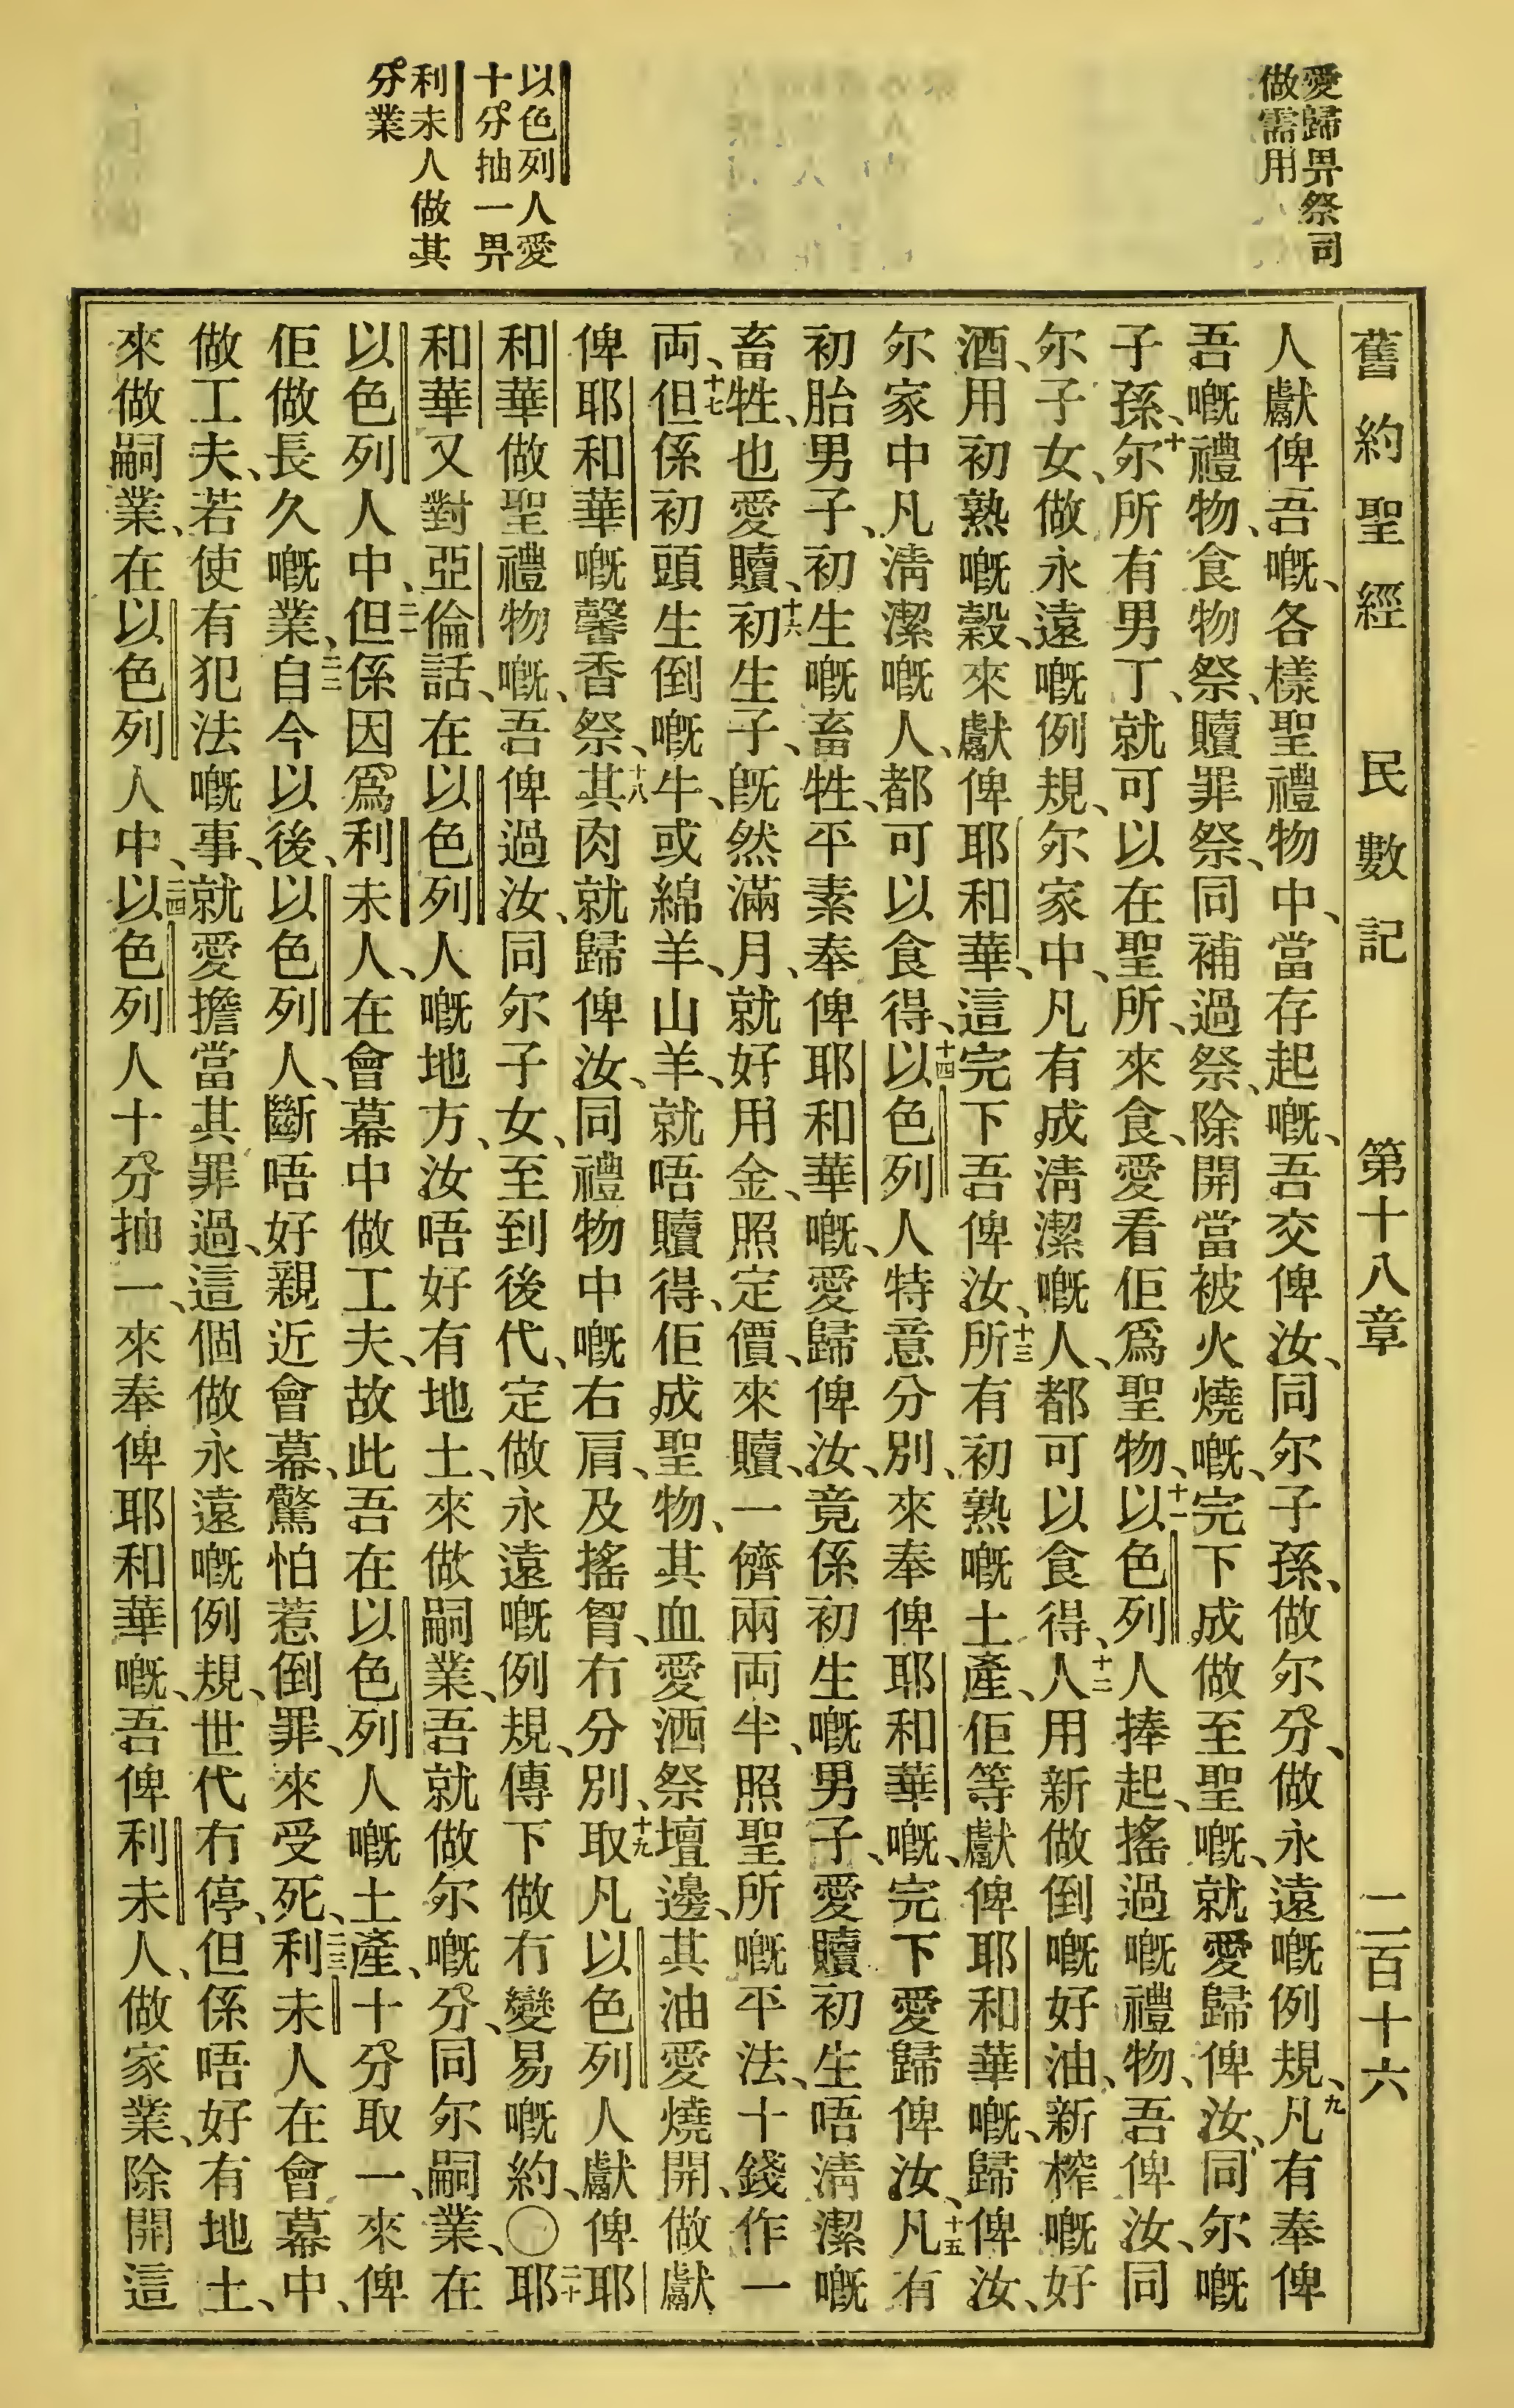 愛歸畀祭司
做需用
以色列人愛
十分抽一畀
利未人做其
分業
舊約聖經 民數記 第十八章 二百十六
人獻俾吾嘅、各樣聖禮物中、當存起嘅、吾交俾汝、同尔子孫、做尔分、做永遠嘅例規、九凡有奉俾
吾嘅禮物、食物祭、贖罪祭、同補過祭、除開當被火燒嘅、完下成做至聖嘅、就愛歸俾汝、同尔嘅
子孫、十尔所有男丁、就可以在聖所、來食、愛看佢爲聖物、十一以色列人捧起、搖過嘅禮物、吾俾汝、同
尔子女、做永遠嘅例規、尔家中、凡有成淸潔嘅人、都可以食得、十二人用新做倒嘅好油、新榨嘅好
酒、用初熟嘅穀、來獻俾耶和華、這完下吾俾汝、十三所有初熟嘅土產、佢等獻俾耶和華嘅、歸俾汝、
尔家中凡淸潔嘅人、都可以食得、十四以色列人特意分別、來奉俾耶和華嘅、完下愛歸俾汝、十五凡有
初胎男子、初生嘅畜牲、平素奉俾耶和華嘅、愛歸俾汝、竟係初生嘅男子、愛贖、初生唔淸潔嘅
畜牲、也愛贖、十六初生子、旣然滿月、就好用金、照定價、來贖、一儕兩両半、照聖所嘅平法、十錢作一
両、十七但係初頭生倒嘅牛、或綿羊、山羊、就唔贖得、佢成聖物、其血愛洒祭壇邊、其油愛燒開、做獻
俾耶和華嘅馨香祭、十八其肉就歸俾汝、同禮物中嘅右肩、及搖胷、冇分別、十九取凡以色列人獻俾耶
和華做聖禮物嘅、吾俾過汝、同尔子女、至到後代、定做永遠嘅例規、傳下做冇變易嘅約、〇二十耶
和華又對亞倫話、在以色列人嘅地方、汝唔好有地土、來做嗣業、吾就做尔嘅分、同尔嗣業、在
以色列人中、二一但係因爲利未人、在會幕中做工夫、故此吾在以色列人嘅土產、十分取一、來俾
佢做長久嘅業、二二自今以後、以色列人、斷唔好親近會幕、驚怕惹倒罪、來受死、二三利未人在會幕中、
做工夫、若使有犯法嘅事、就愛擔當其罪過、這個做永遠嘅例規、世代冇停、但係唔好有地土、
來做嗣業、在以色列人中、二四以色列人十分抽一、來奉俾耶和華嘅、吾俾利未人、做家業、除開這